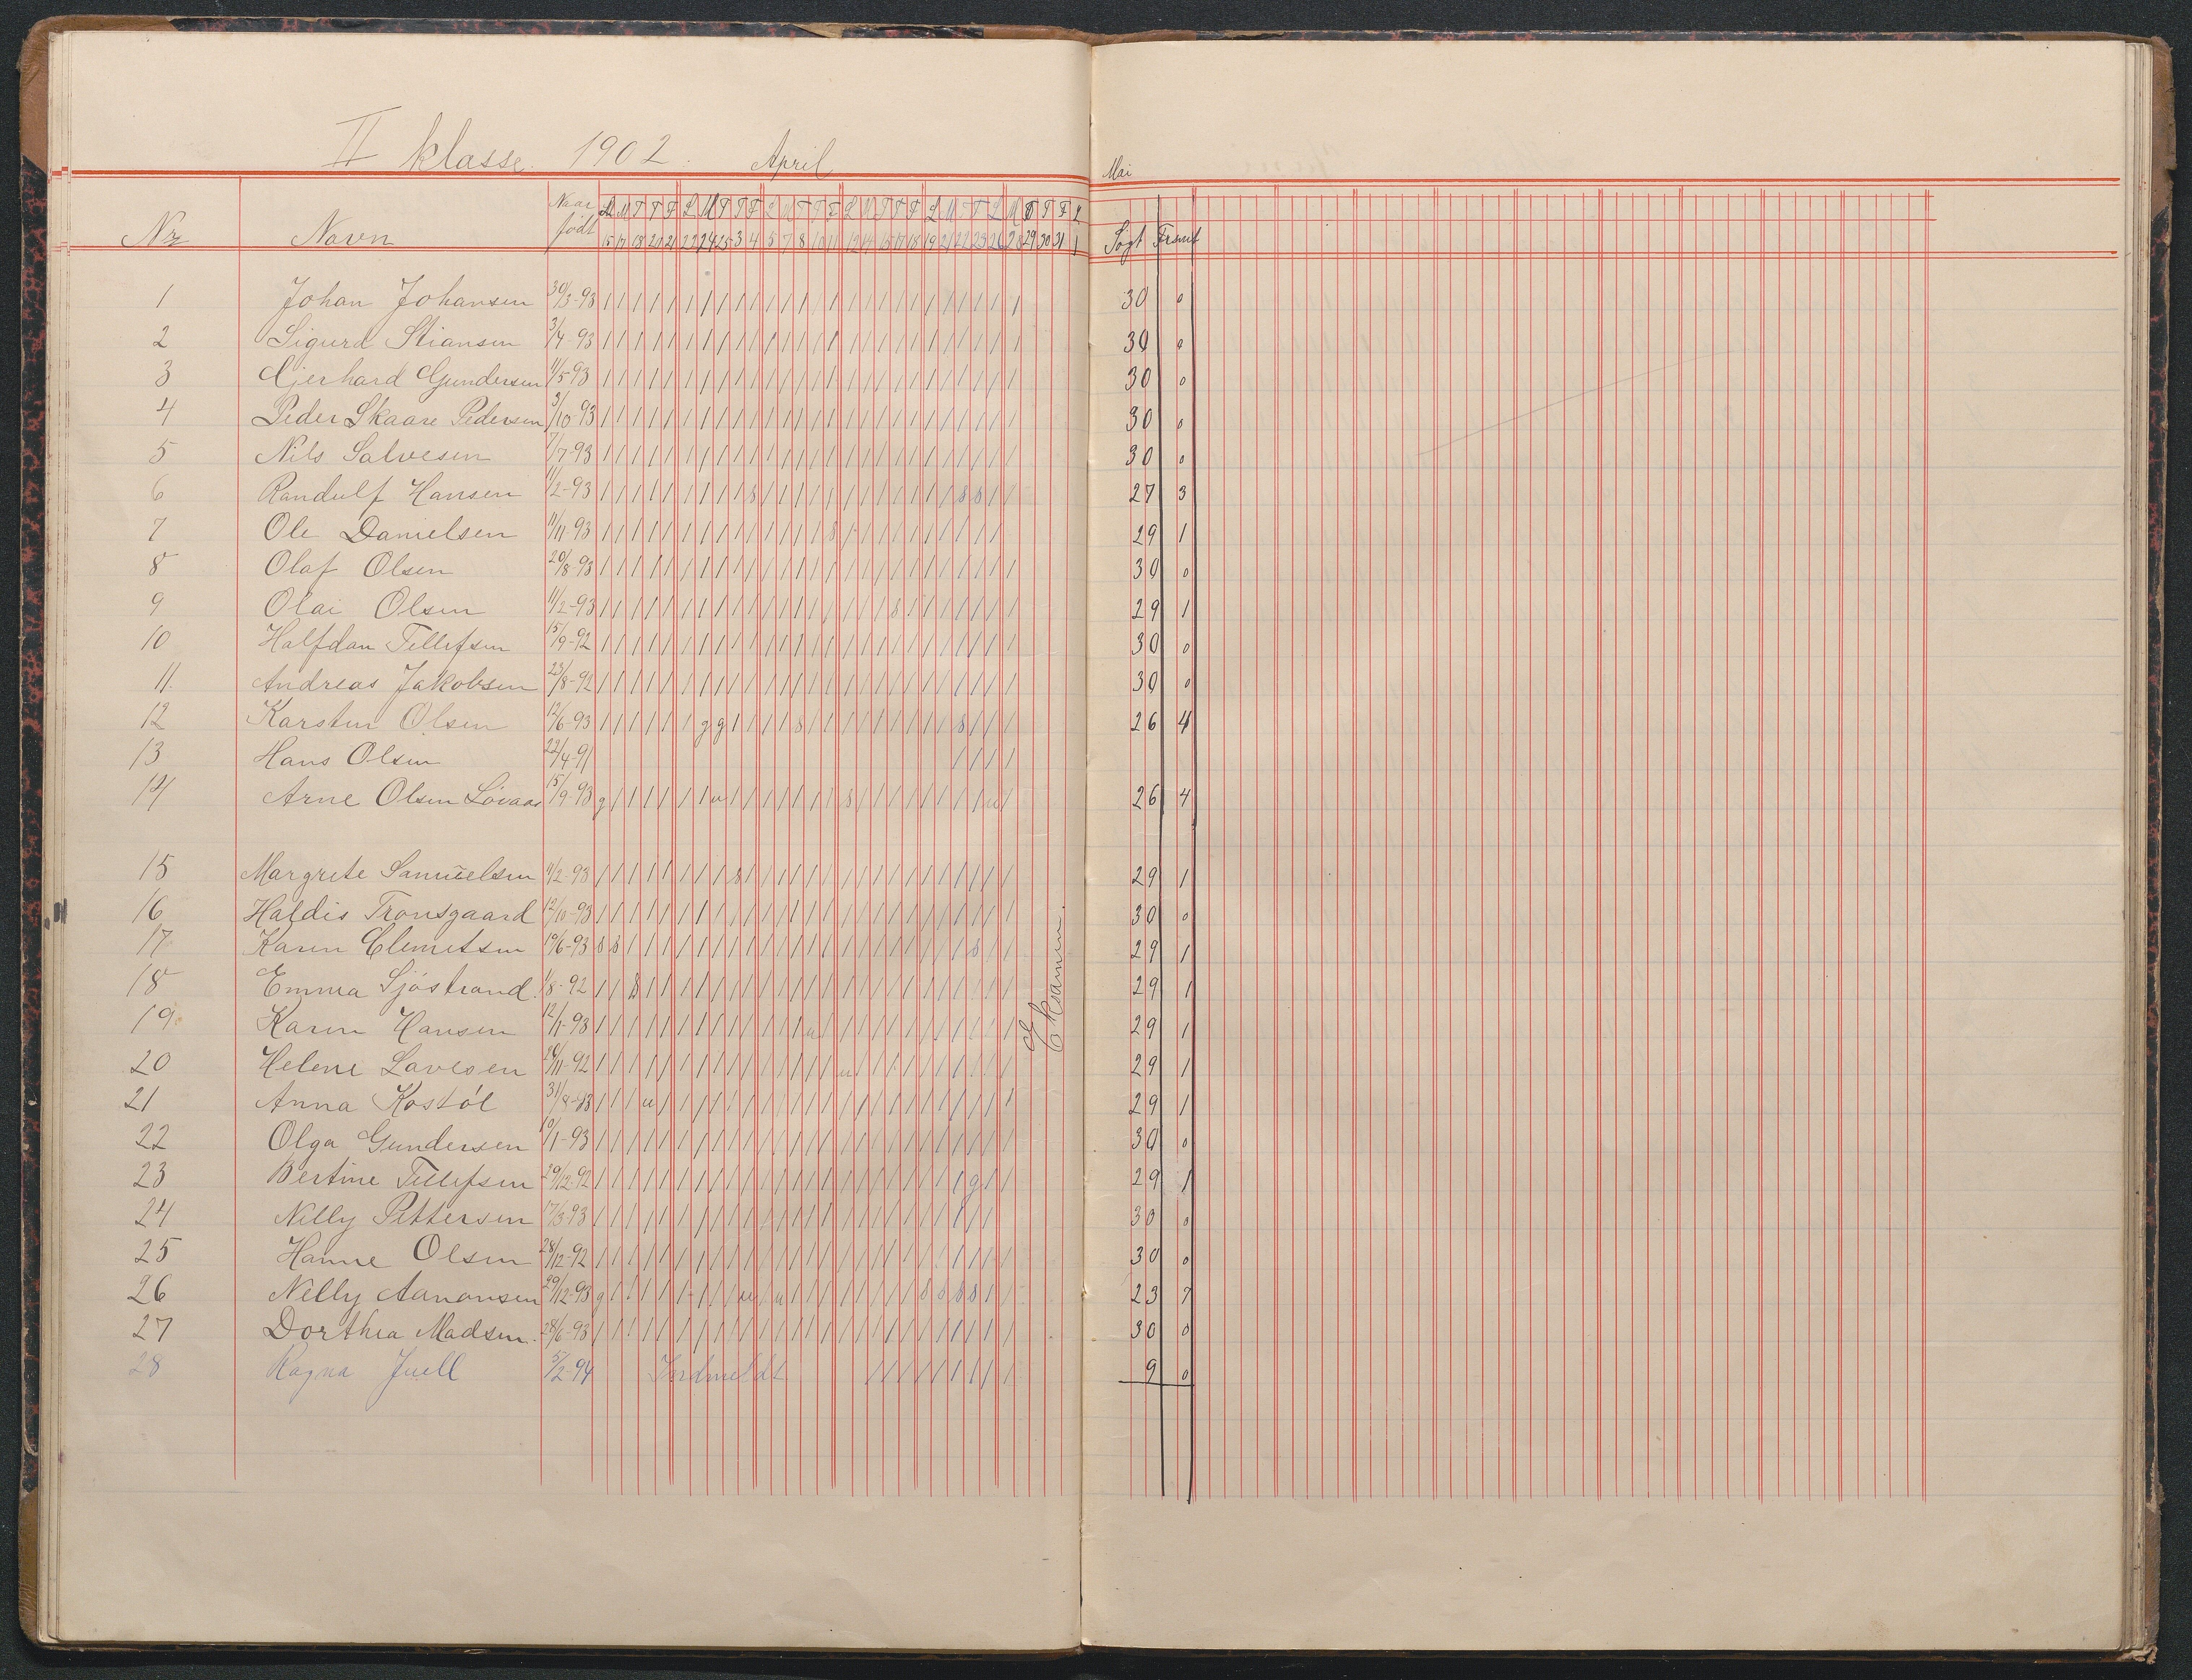 II klasse. 1902. April
Mai
Nr Navn Naar født
L M T T F L M T T F L M T T F L M T T F L M T T L M T T F L
15 17 18 20 21 22 24 25 3 4 5 7 8 10 11 12 14 15 17 18 19 21 22 23 26 28 29 30 31 1
Søgt Forsømt
1 Johan Johansen 30/3-93 30 0
2 Sigurd Stiansen 3/4-93 30 0
3 Gjerhard Gundersen 11/5-93 30 0
4 Peder Skaare Pedersen 3/10-93 30 0
5 Nils Salvesen 7/7-93 30 0
6 Randulf Hansen 11/2-93 27 3
7 Ole Danielsen 11/11-93 29 1
8 Olaf Olsen 20/8-93 30 0
9 Olai Olsen 11/2-93 29 1
10 Halfdan Tellefsen 15/9-92 30 0
11. Andreas Jakobsen 23/8-92 30 0
12 Karsten Olsen 12/6-93 g g 26 4
13 Hans Olsen 22/4-91
14 Arne Olsen Løvaas 15/9-93 g u s u 26 4
15 Margrete Samuelsen 11/2-93 s 29 1
16 Haldis Tronsgaard 12/10-93 30 0
17 Karen Clemetsen 10/6-93 s s s 29 1
18 Emma Sjöstrand. 1/8-92 s 29 1
19 Karen Hansen 12/1-93 u 29 1
20 Helene Lavesen 24/11-92 u 29 1
21 Anna Kostøl 31/8-93 u 29 1
22 Olga Gundersen 10/1-93 30 0
23 Bertine Tellefsen 29/12-92 g 29 1
24 Nelly Pettersen 17/3-93 30 0
25 Hanne Olsen 28/12-92 30 0
26 Nelly Aanonsen 29/12-93 g u u s s s s 23 7
27 Dorthea Madsen. 28/6-93 30 0
28 Ragna Juell 5/2-94 Indmeldt 9 0
Eksamen.